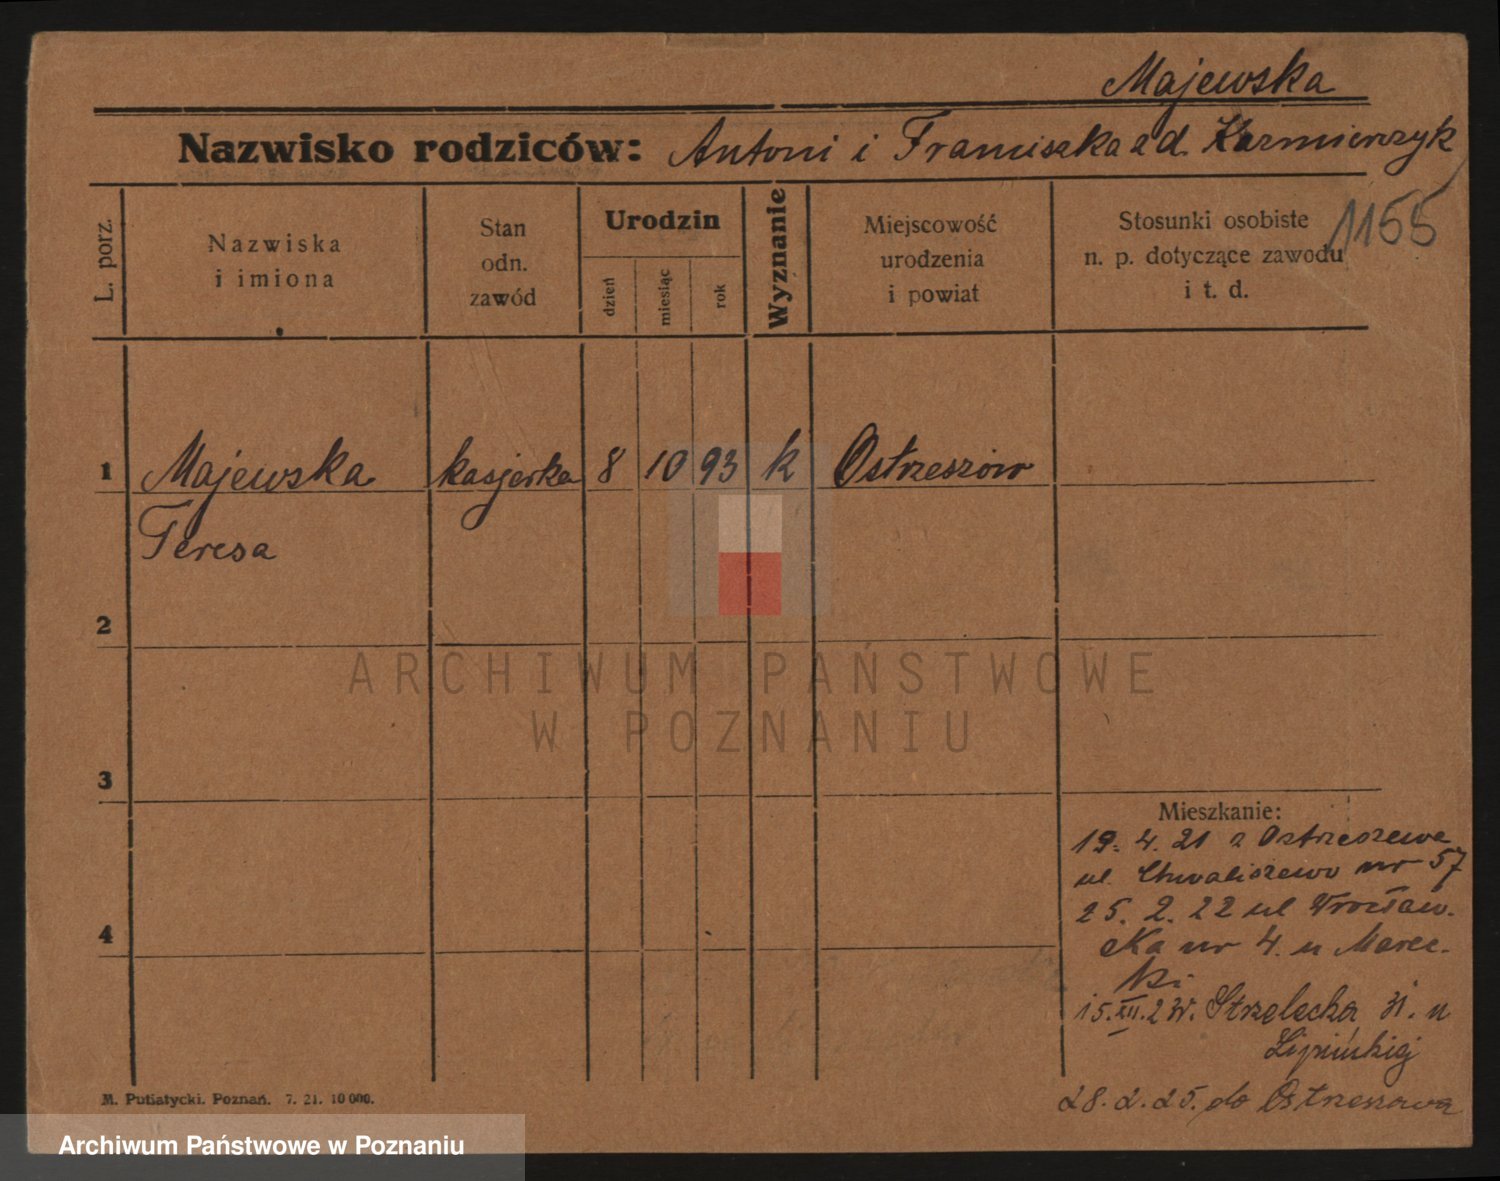 Majewska
Nazwisko rodziców: Antoni i Franciszka z d. Kazmierczyk
1155
L. porz.
Nazwiska
i imiona
Stan
odn.
zawód
Urodzin
dzień
miesiąc
rok
Wyznanie
Miejscowość
urodzenia
i powiat
Stosunki osobiste
n. p. dotyczące zawodu
i t. d.
1 Majewska kasjerka 8 10 93 k Ostrzeszów
Teresa
2
ARCHIWUM PAŃSTWOWE
W POZNANIU
3
Mieszkanie:
19. 4. 21 z Ostrzeszewa
ul. Chwaliszewo nr 57
25. 2. 22 ul Wrocław-
4
ska nr 4. u Marec-
ki
15.XII.23. Strzelecka 31. u
Lipińskiej
28. 2. 25. do Ostrzeszowa
M. Putiatycki. Poznań. 7. 21. 10 000.
Archiwum Państwowe w Poznaniu